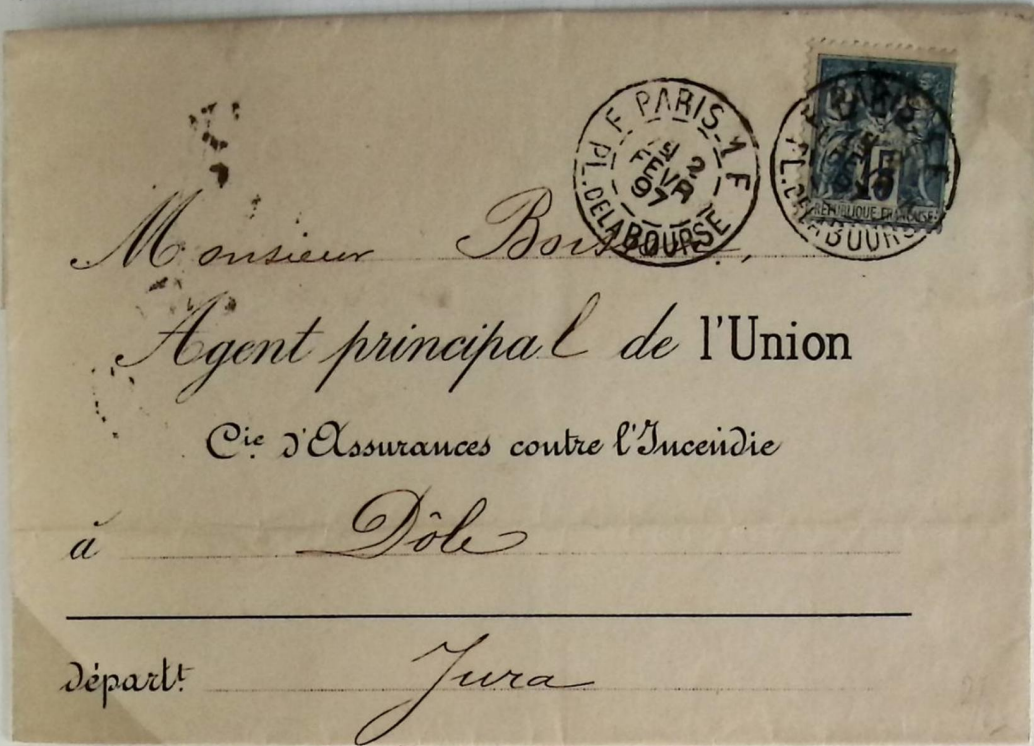 PARIS-1 F
PL. DE LA BOURSE
2
FEVR
97
PARIS
PL. DE LA BOURSE
15
RÉPUBLIQUE FRANÇAISE
Monsieur
Agent principal de l'Union
Cie d'Assurances contre l'Incendie
à Dôle
départt. Jura